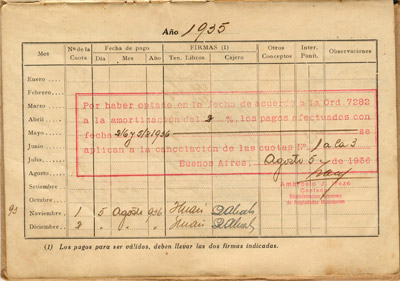 Año 1935
Mes Nº de la Cuota Fecha de pago FIRMAS (1) Otros Conceptos Inter. Punit. Observaciones
Día Mes Año Ten. Libros Cajero
Enero
Febrero
Marzo
Abril
Mayo
Junio
Julio
Agosto
Setiembre
Octubre
Noviembre 1 5 Agosto 936
Diciembre 2 " " "
Por haber optado en la fecha de acuerdo a la Ord. 7282
a la amortización del 2 %, los pagos efectuados con
fecha se
aplican a la cancelación de las cuotas Nº. 1 a la 3
Buenos Aires, Agosto 5 de 1936
Contador
(1) Los pagos para ser válidos, deben llevar las dos firmas indicadas.